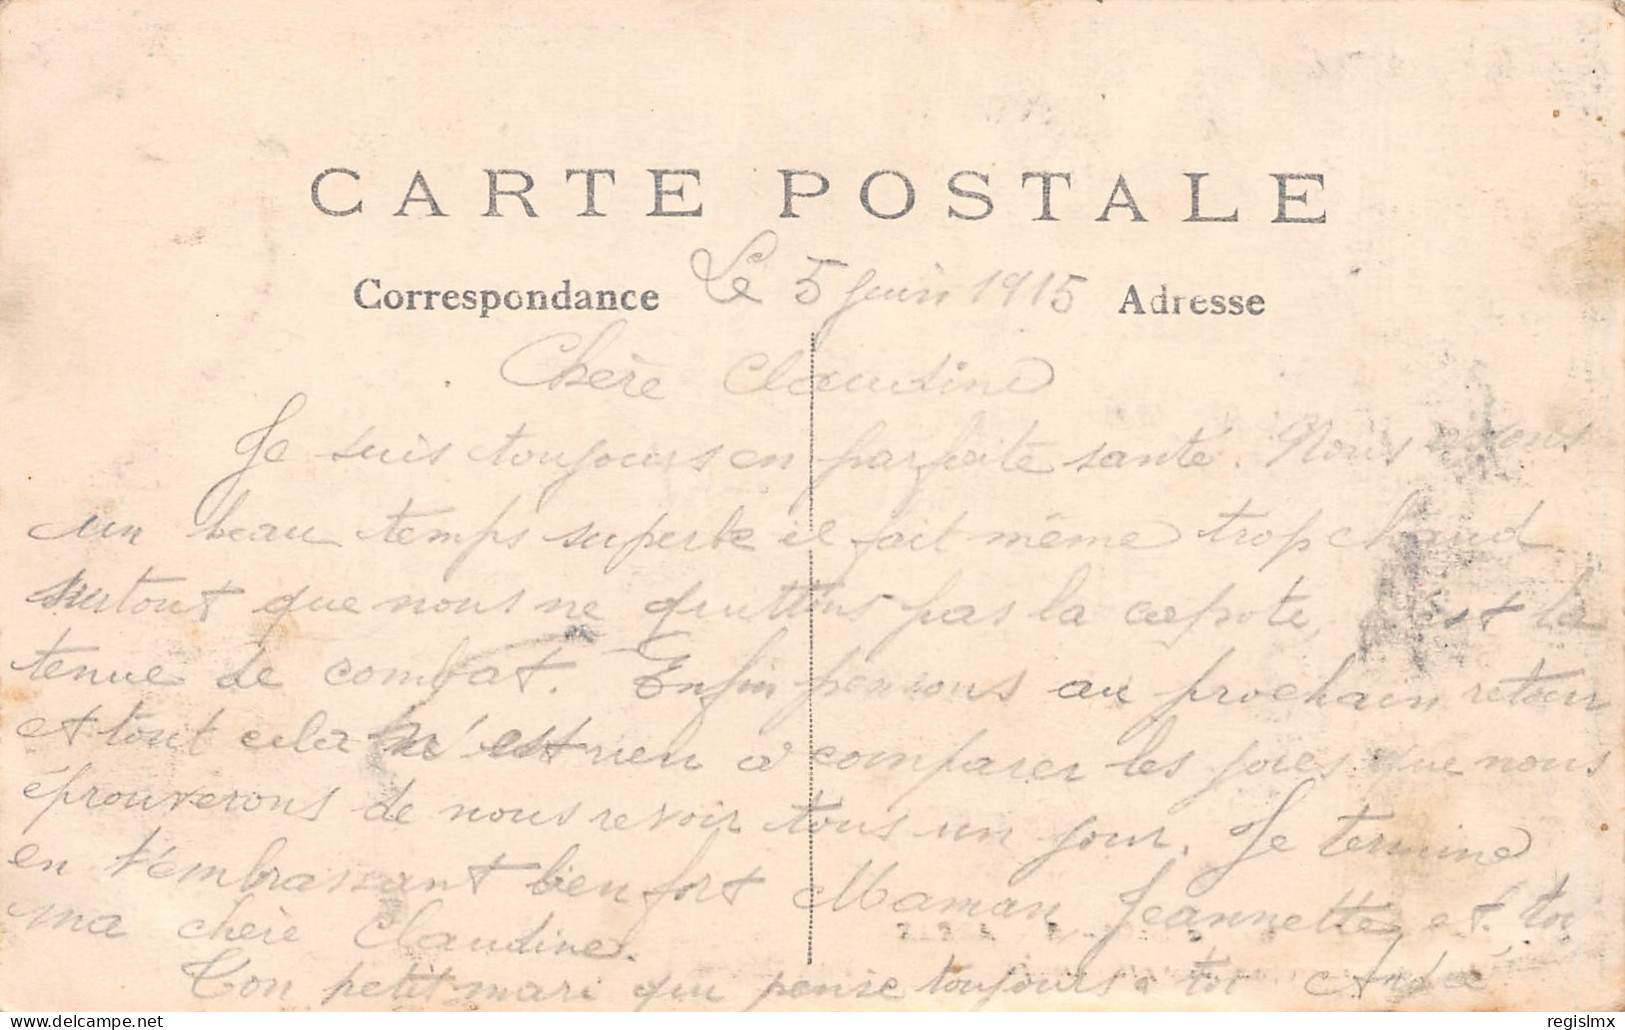 CARTE POSTALE
Correspondance Le 5 Juin 1915 Adresse
Chère Claudine
Je suis toujours en parfaite santé. Nous avons
un beau temps superbe il fait même trop chaud
surtout que nous ne quittons pas la capote, c'est la
tenue de combat. Enfin pensons au prochain retour
et tout cela n'est rien a comparer les joies que nous
éprouverons de nous revoir tous un jour. Je termine
en t'embrassant bien fort Maman Jeannette et toi
ma chère Claudine.
Ton petit mari qui pense toujours a toi André
delcampe.net
regislmx